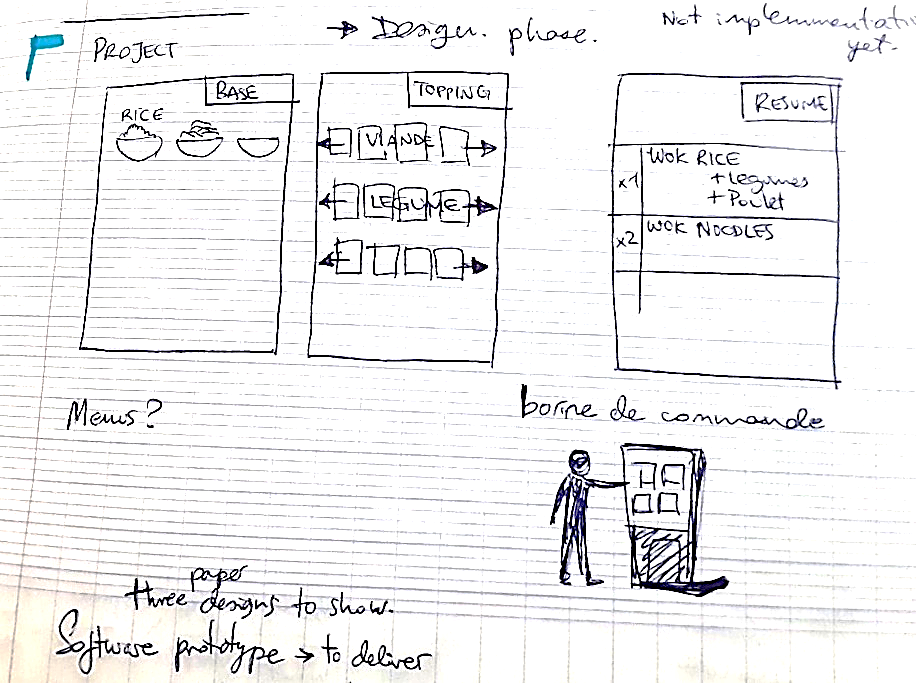 → Design. phase.
Not implemmentati
yet.
PROJECT
BASE
RICE
TOPPING
VIANDE
LEGUME
RESUME
x1 WOK RICE
+Légumes
+Poulet
x2 WOK NOODLES
Menus?
borne de commande
paper
three designs to show.
Software prototype → to deliver